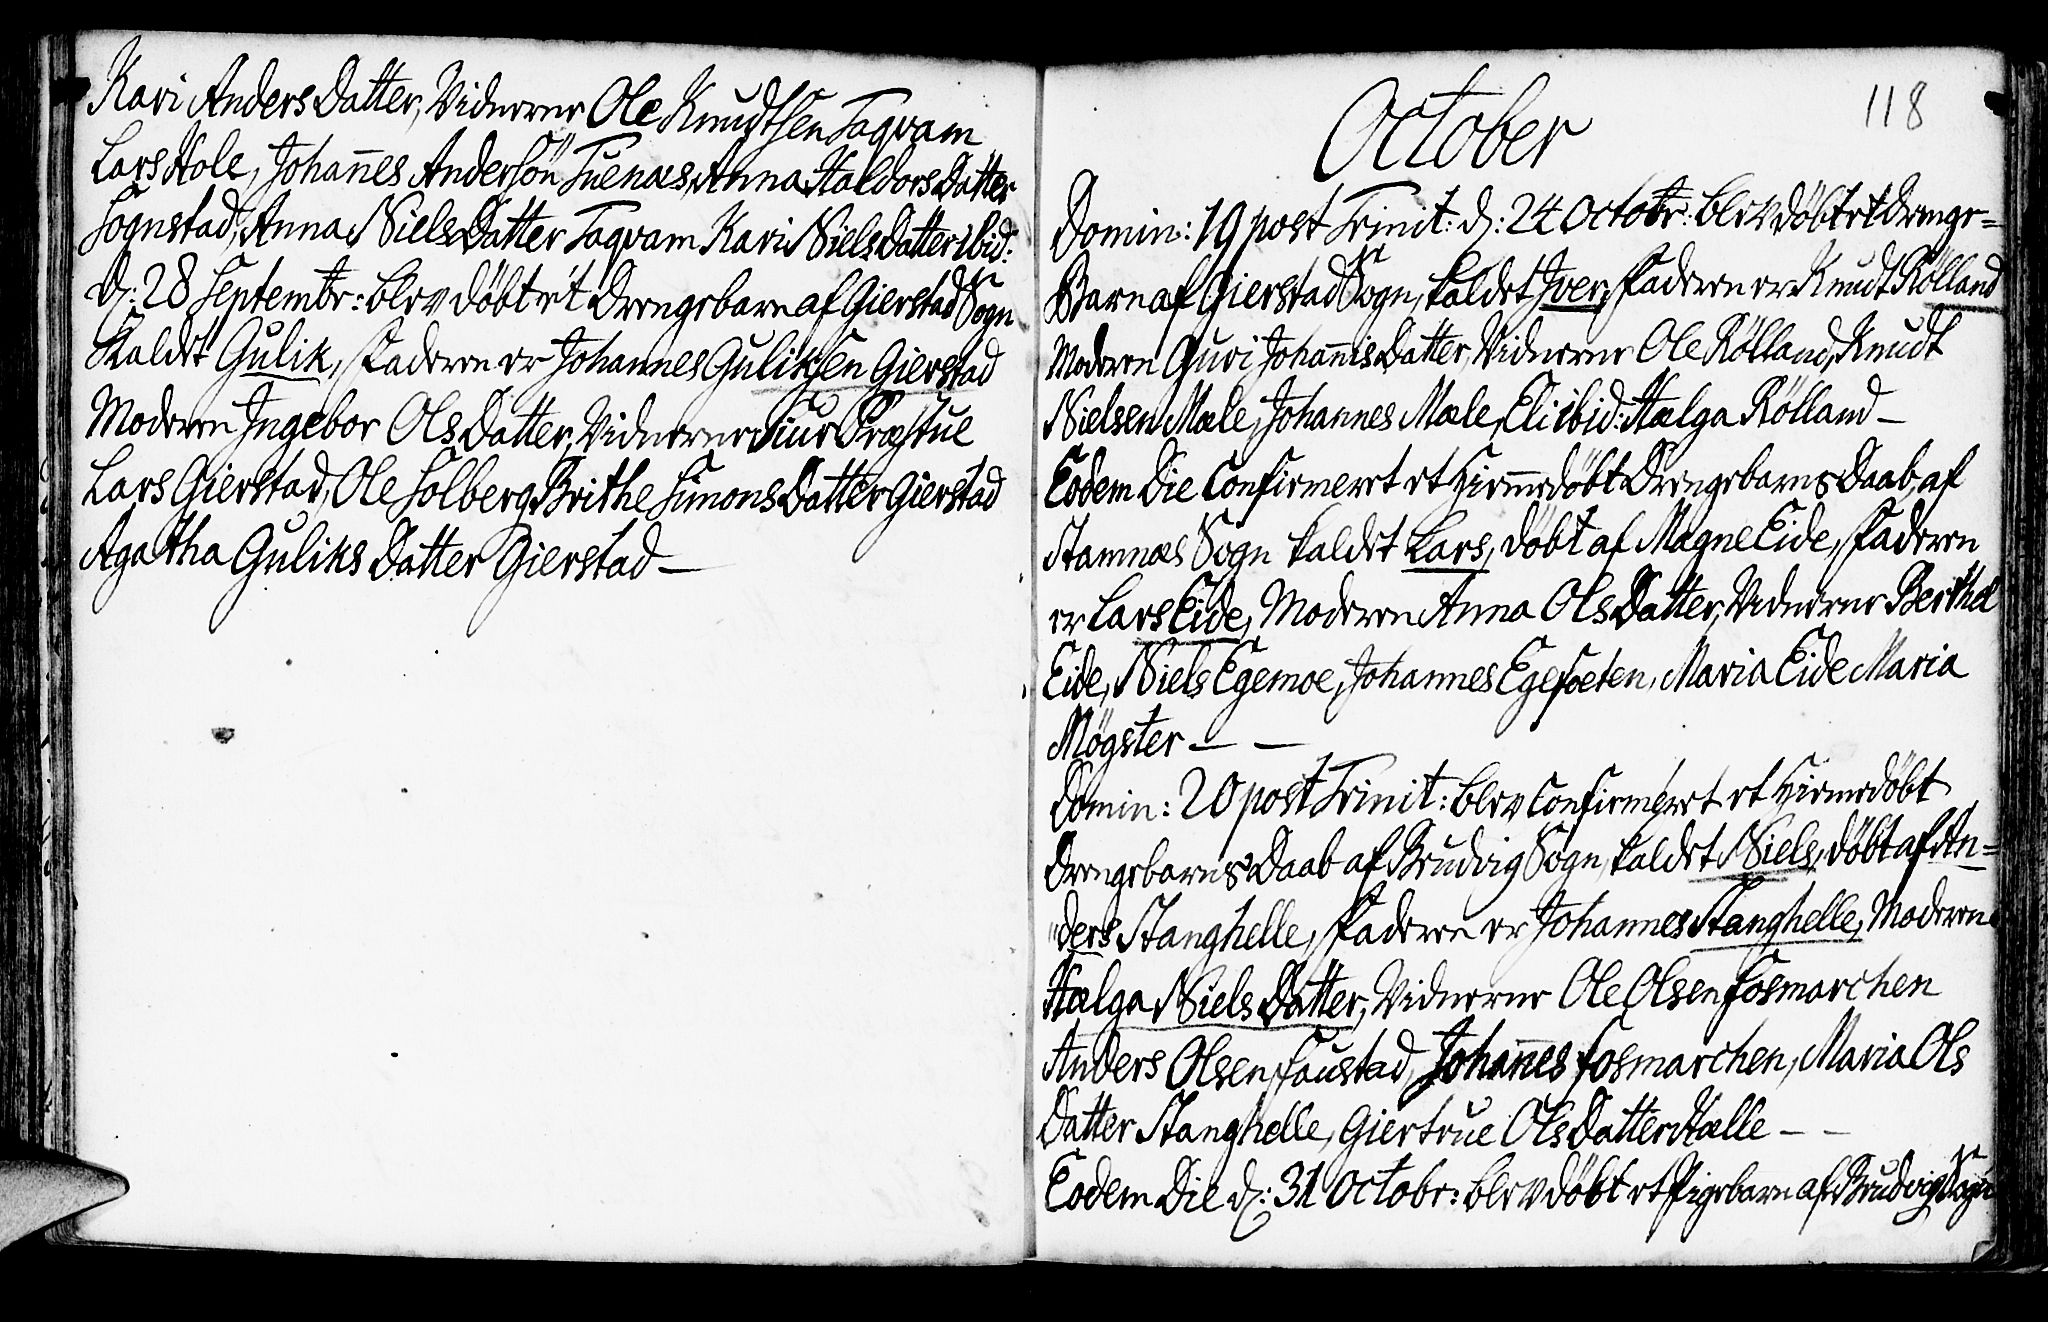 Kari Anders Datter, Vidnerne Ole Knudtsen Taqvam
Lars Hole, Johan̄es Andersön Tuenæs, Anna Haldors Datter
Sognstad, Anna Niels Datter Taqvam Kari Niels Datter ibid:
D: 28 Septembr: blev döbt et Drengebarn af Gierstad Sogn
Kaldet Gulik, Faderen er Johannes Guliksen Gierstad
Moderen Ingebor Ols Datter, Vidnerne Siur Præstue
Lars Gierstad, Ole Solberg, Brithe Simons Datter Gierstad
Agatha Guliks Datter Gierstad —
118
October
Domin: 19 post Trinit: d: 24 Octobr: blev döbt et Drenge=
Barn af Gierstad Sogn, kaldet Iver, Faderen er Knudt Rölland
Moderen Guri Johan̄is Datter, Vidnerne Ole Rölland, Knudt
Nielsen Mæle, Johannes Mæle, Eli ibid: Hælga Rölland —
Eodem Die Confirmeret et Hiem̄edöbt Drengebarns Daab, af
Stamnæs Sogn kaldet Lars, döbt af Magne Eide, Faderen
er Lars Eide, Moderen Anna Ols Datter, Vidnerne Berthel
Eide, Niels Egemoe, Johannes Egesæten, Maria Eide Maria
Mögster — —
Domin: 20 post Trinit: blev Confirmeret et Hiemedöbt
Drengebarns Daab af Brudvig Sogn, kaldet Niels, döbt af An=
"ders Stanghelle, Faderen er Johannes Stanghelle, Moderen
Hælga Niels Datter, Vidnerne Ole Olsen Fosmarchen
Anders Olsen Faustad, Johan̄es Fosmarchen, Maria Ols
Datter Stanghelle, Giertrue Ols Datter Hælle — —
Eodem Die d: 31 Octobr: blev döbt et Pigebarn af Brudvig Sogn